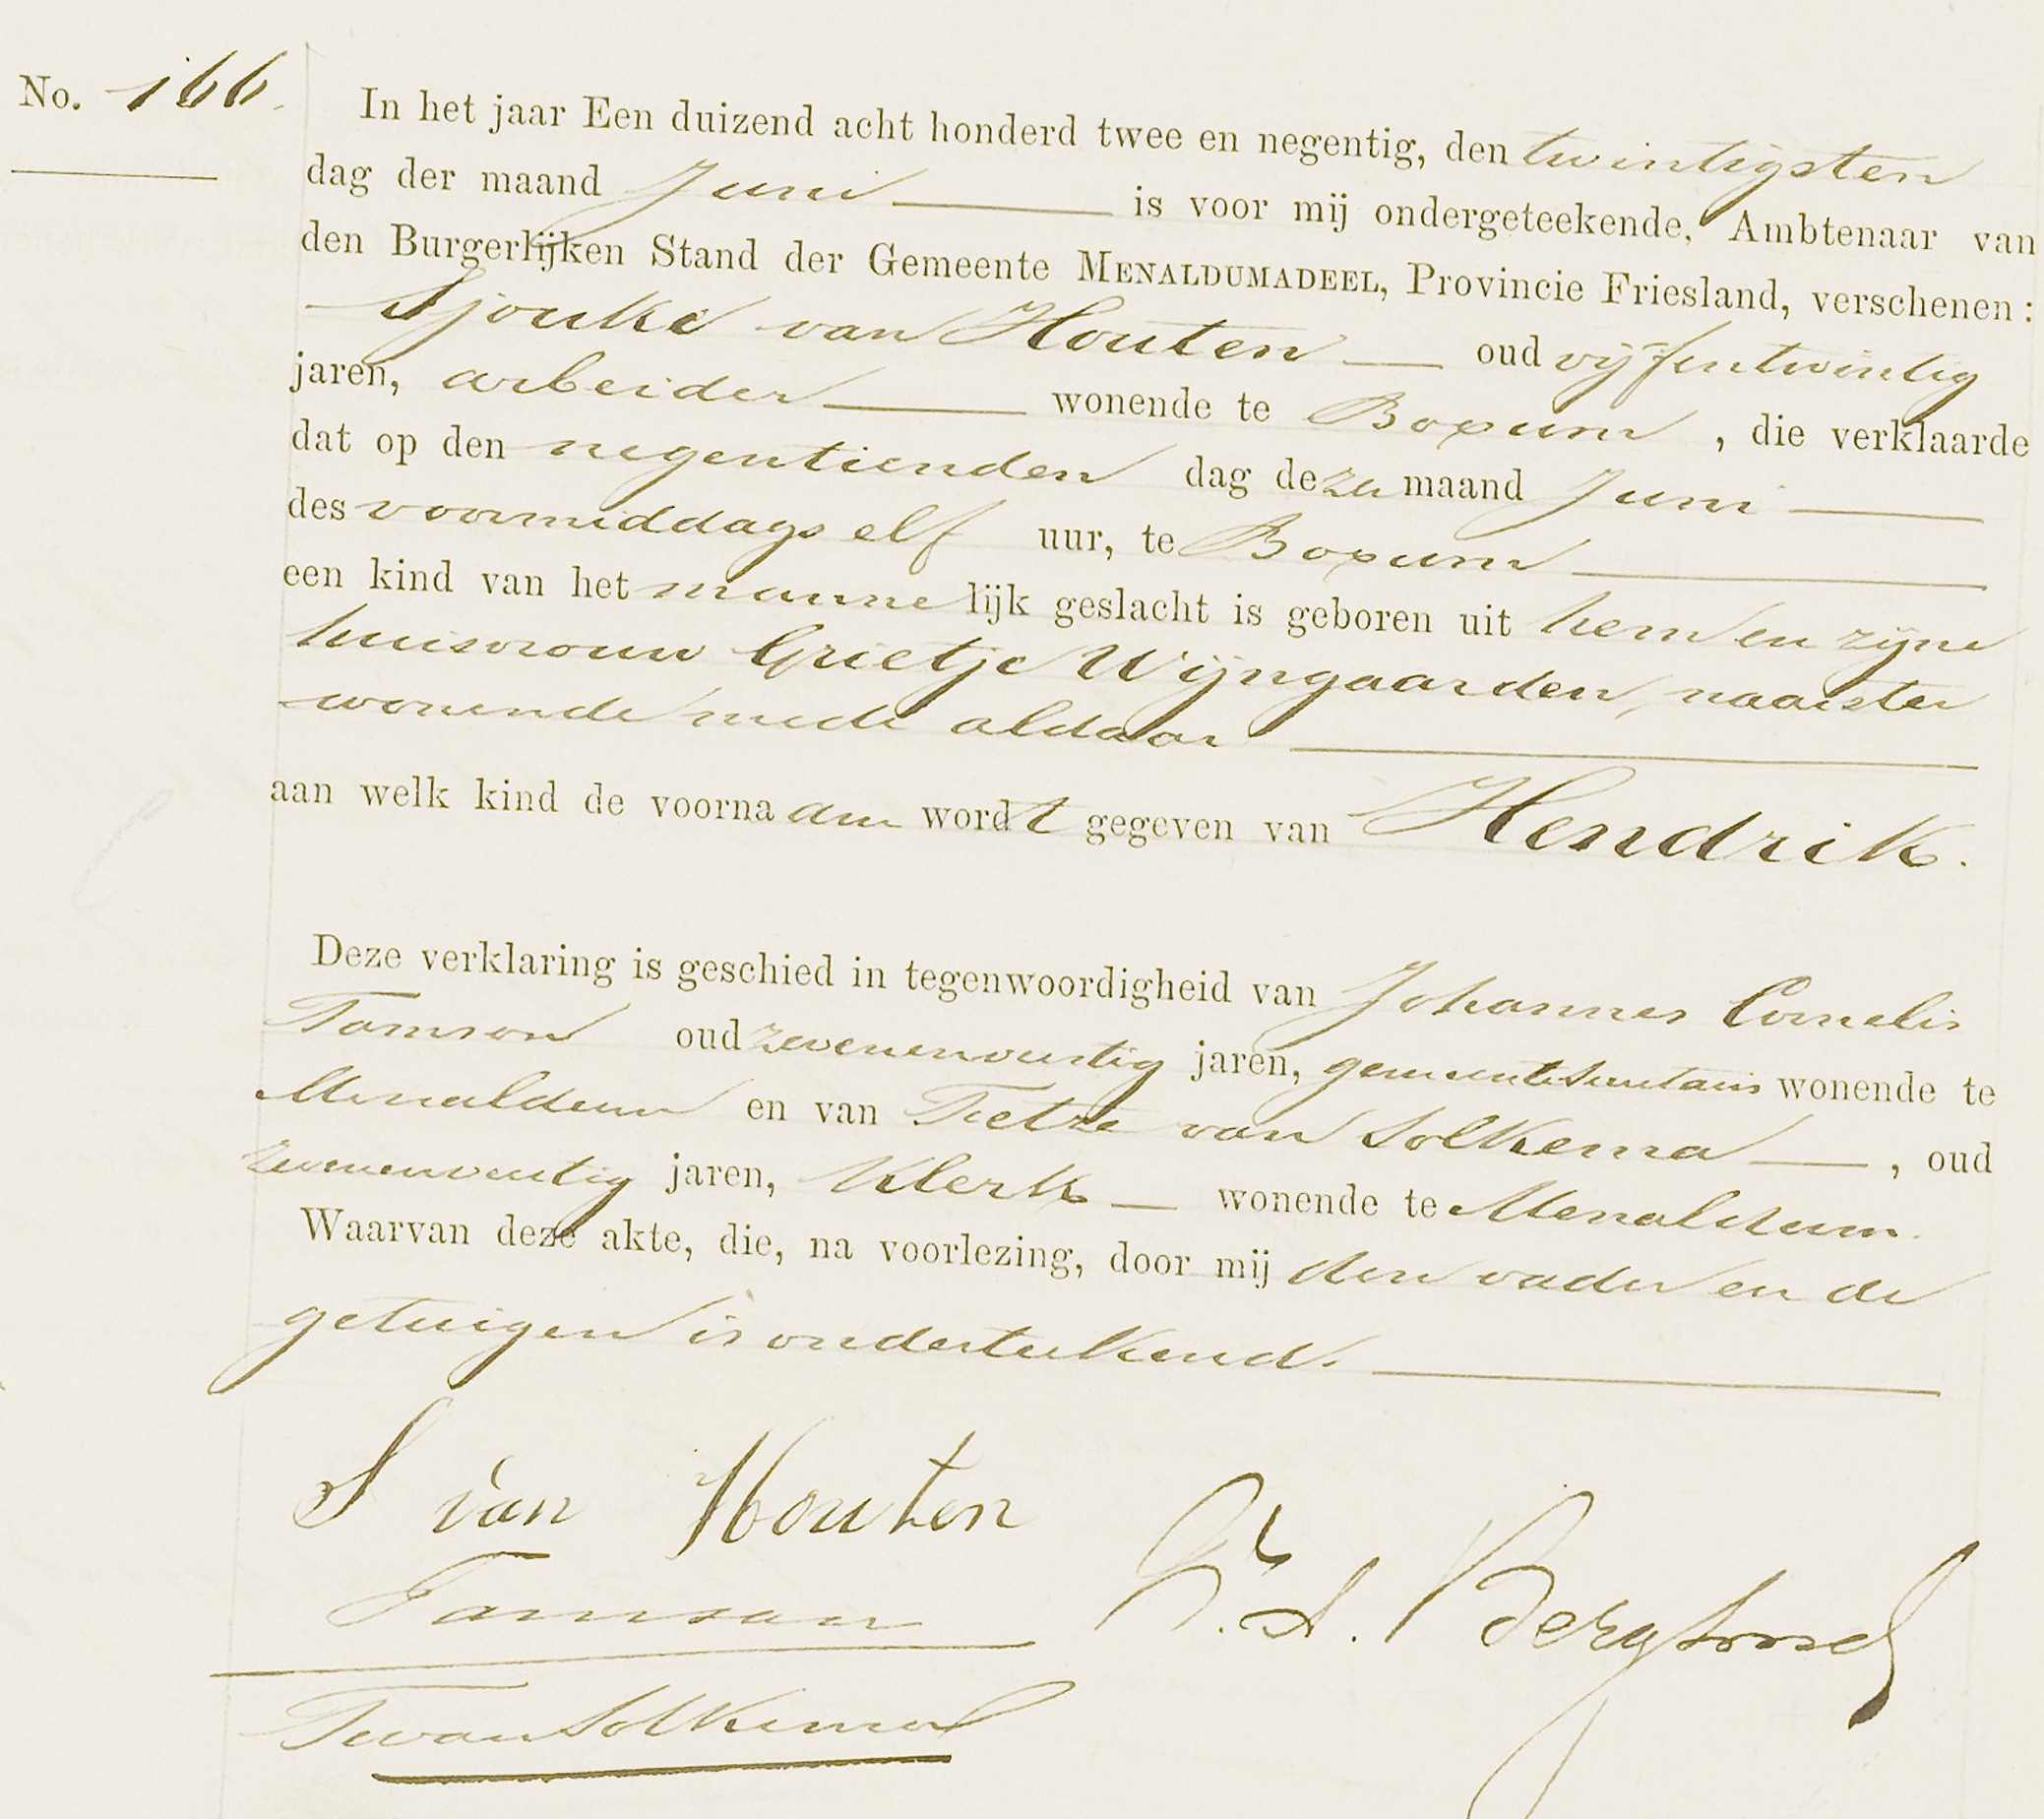 No. 166.
In het jaar Een duizend acht honderd twee en negentig, den twintigsten
dag der maand Juni is voor mij ondergeteekende, Ambtenaar van
den Burgerlijken Stand der Gemeente MENALDUMADEEL, Provincie Friesland, verschenen:
Sjouke van Houten oud vijfentwintig
jaren, arbeider wonende te Boxum, die verklaarde
dat op den negentienden dag dezer maand Juni
des voormiddags elf uur, te Boxum
een kind van het mannelijk geslacht is geboren uit hem en zijne
huisvrouw Grietje Wijngaarden, naaister
wonende mede aldaar
aan welk kind de voornaam wordt gegeven van Hendrik.
Deze verklaring is geschied in tegenwoordigheid van Johannes Cornelis
Tamson oud zevenenveertig jaren, gemeentesecretaris wonende te
Menaldum en van Tietze van Solkema, oud
zevenenveertig jaren, klerk wonende te Menaldum.
Waarvan deze akte, die, na voorlezing, door mij den vader en de
getuigen is onderteekend.
S van Houten
Tamson
T van Solkema